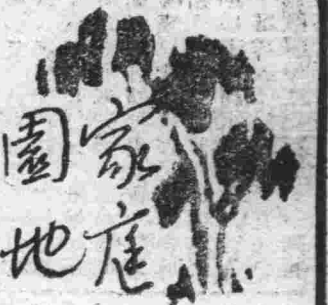 家庭
園地